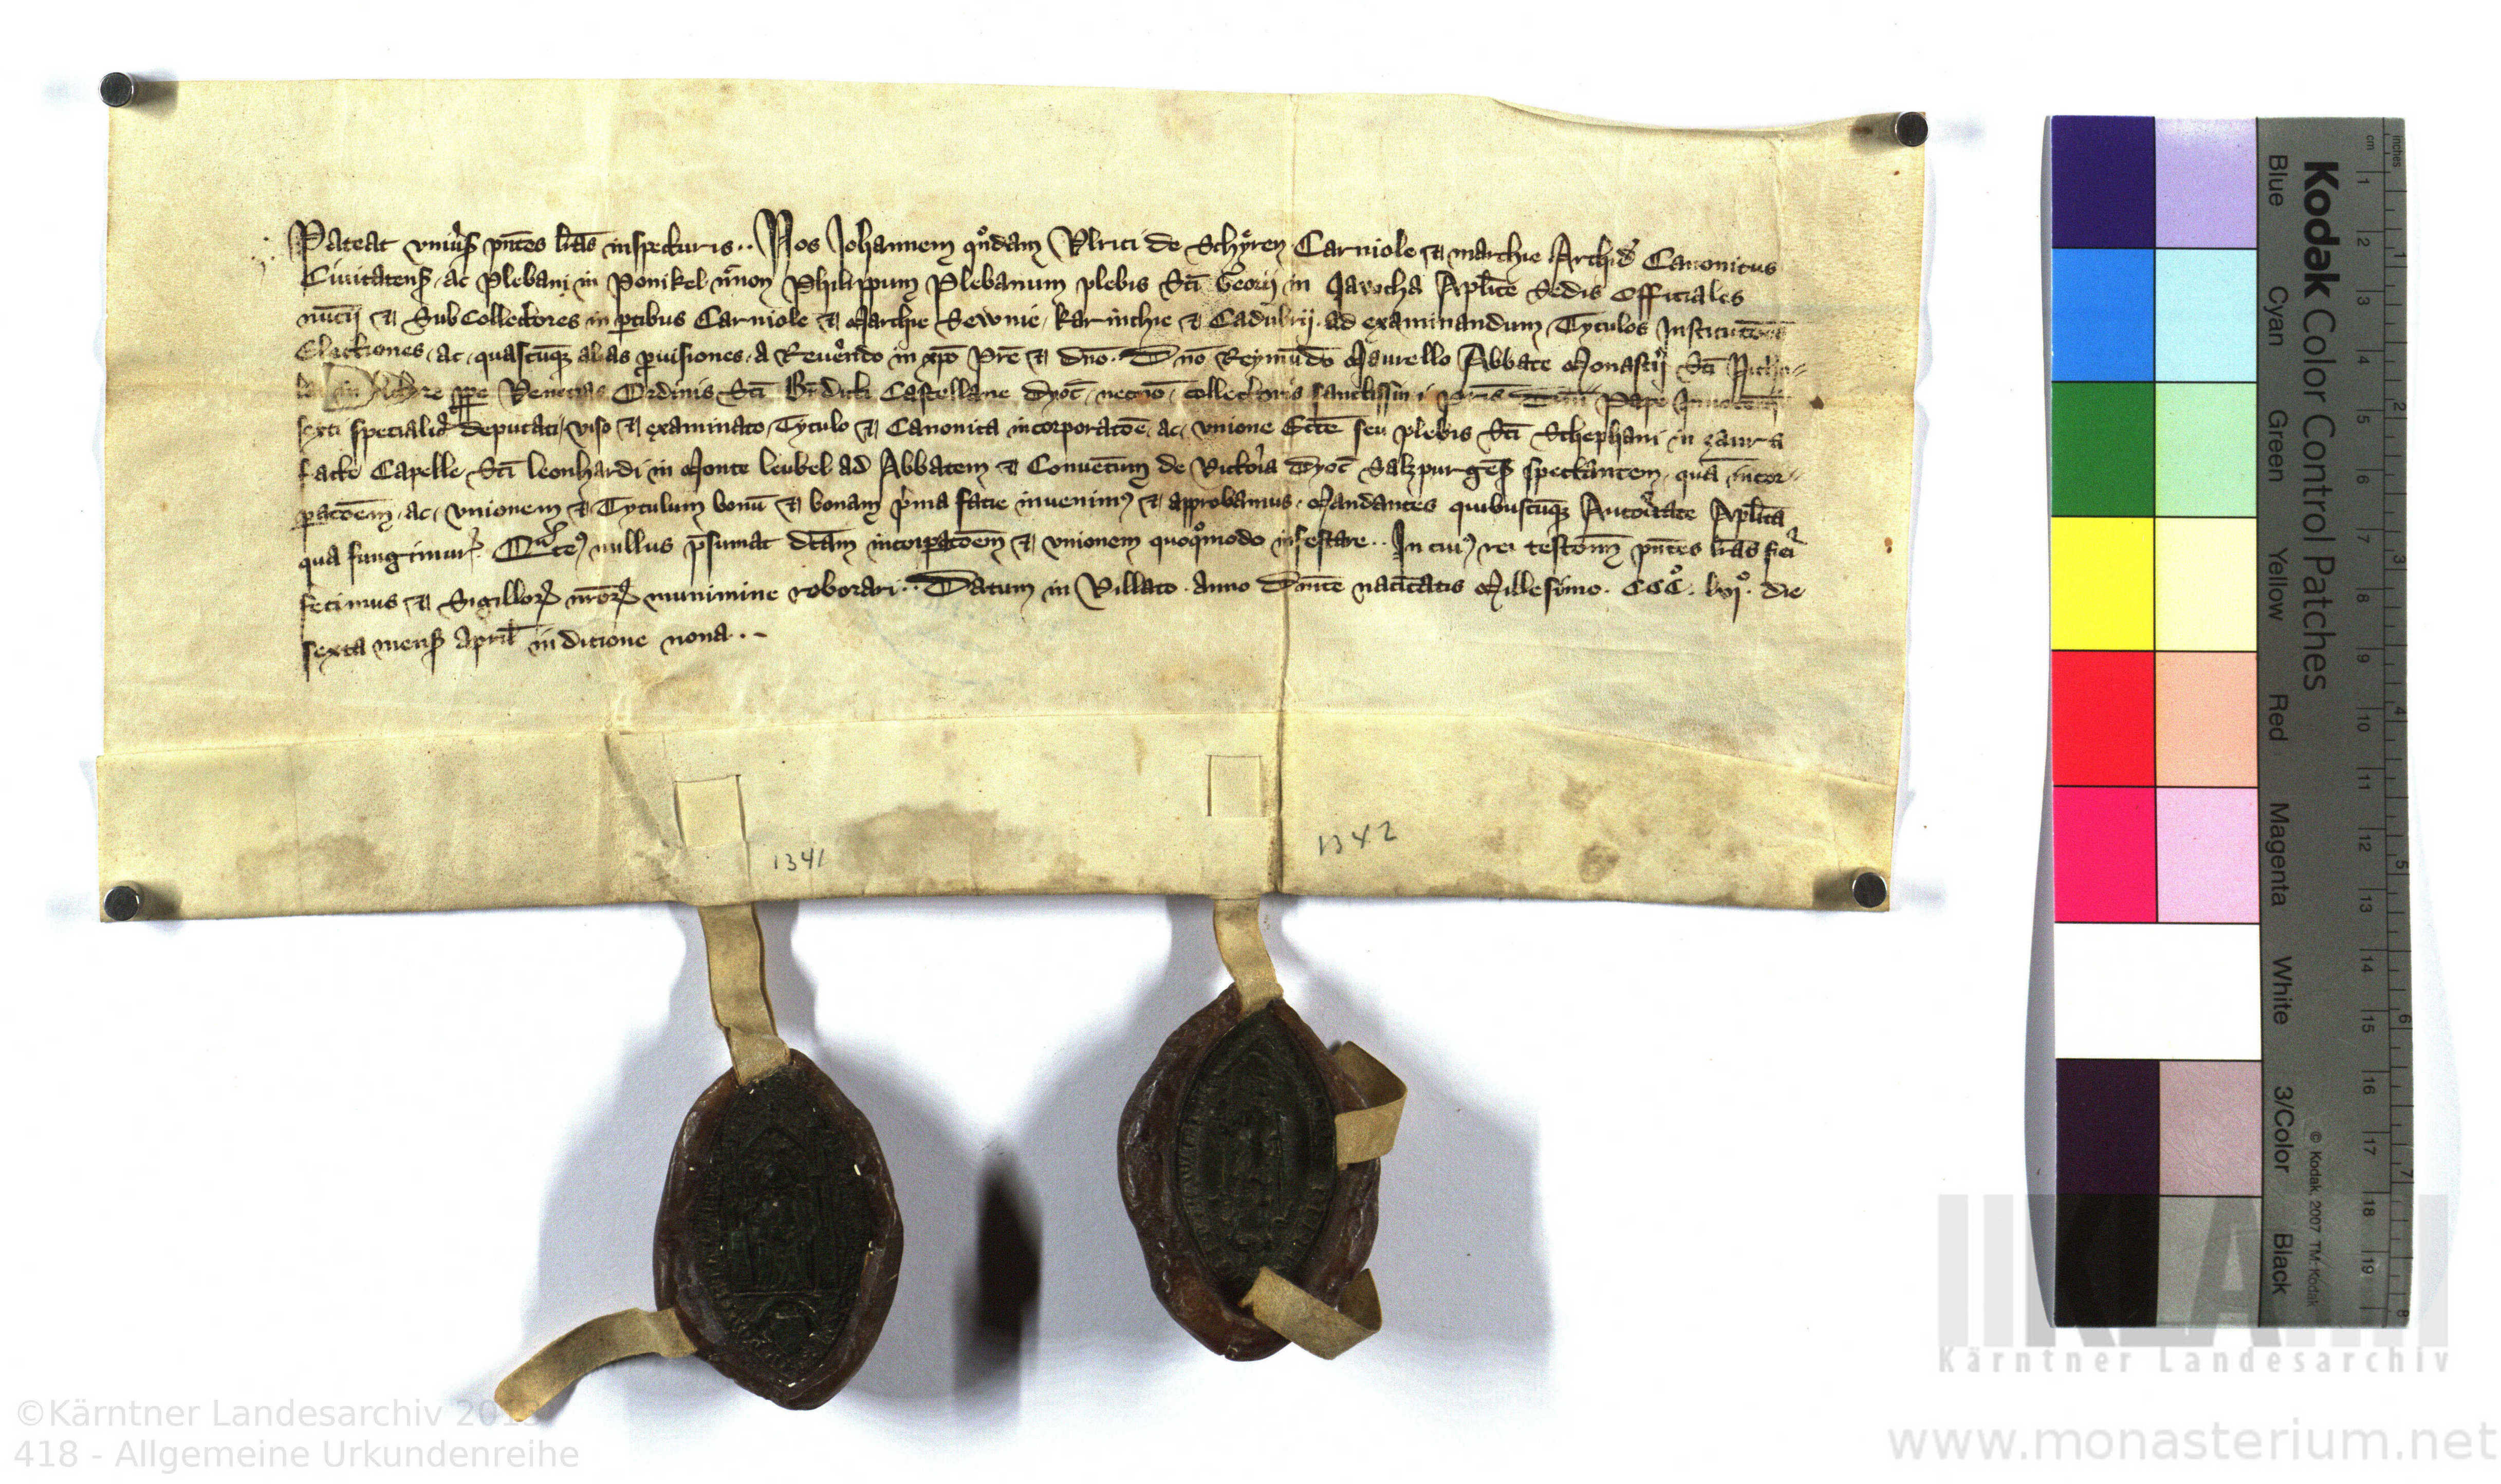 Pateat vniu̾s pn̄tes l̄ras inspecturis .. Nos Johannem qͦndam Vlrici de Schẏren Carniole et marchie Archid̾ Canonicus
Ciuitatens̾ ac Plebani in Ponikel n̄ non Philippum Plebanum plebis Sc̄i Georij in Jarocha Apl̄ice Sedis Officiales
nūcij et Subcollectores in ꝑtibus Carniole et Marchie Sewnie karinthie et Cadubrij ad examinandum Tytulos Institutōes
Electiones ac quascūqꝫ alias ꝓuisiones a Reuerēdo in xp̄o Pr̄e et dn̄o . Dn̄o Reymūdo Maurello Abbate Monast̾ij Sc̄i Nicho-
re ꝓpe Venecias Ordinis Sc̄i Bn̄dicti Castellane dyoc̄ necnō collectoris sanctissimi Pape
sexti specialit̾ deputati viso et examinato Tytulo et Canonica incorporatōe ac vnione Ecc̄e seu plebis Sc̄i Schephani in zaura
facte Capelle Sc̄i leonhardi in Monte leubel ad Abbatem et Conuētum de Victoria dyoc̄ Salzpurgēs̾ spectantem quā incor-
ꝑatōem ac vnionem et Tytulum bonū et bonam p̾ma facie inuenimꝰ et approbamus . Mandantes quibuscūqꝫ Auctoritate Apl̄ica
qua fungimur . nullus p̄sumat dc̄am incorꝑatōem et vnionem quoqͦmodo infestare .. In cuiꝰ rei testom̄ pn̄tes l̄ras fieri
fecimus et Sigilloꝝ nr̄oꝝ munimine roborari .. Datum in Villaco . anno Dn̄ice natiuitatis Millesimo . CCCͦ . lxjͦ . die
sexta mens̾ April̄ indicione nona .. -
1341
1342
Kodak Color Control Patches
Blue Cyan Green Yellow Red Magenta White 3/Color Black
© Kodak, 2007 TM: Kodak
cm 1 2 3 4 5 6 7 8 9 10 11 12 13 14 15 16 17 18 19
inches 1 2 3 4 5 6 7 8
KLA
Kärntner Landesarchiv
©Kärntner Landesarchiv
418 - Allgemeine Urkundenreihe
www.monasterium.net